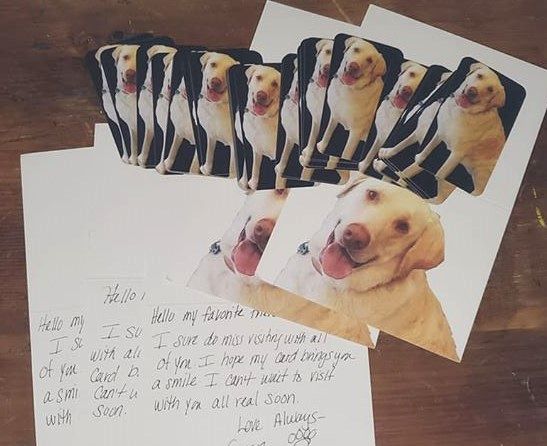 Hello my
I S
of you
a smi
with
Hello
I su
with all
Card b
Can't w
soon.
Hello my favorite
I sure do miss visiting with all
of you. I hope my card brings you
a smile I can't wait to visit
with you all real soon.
Love Always-